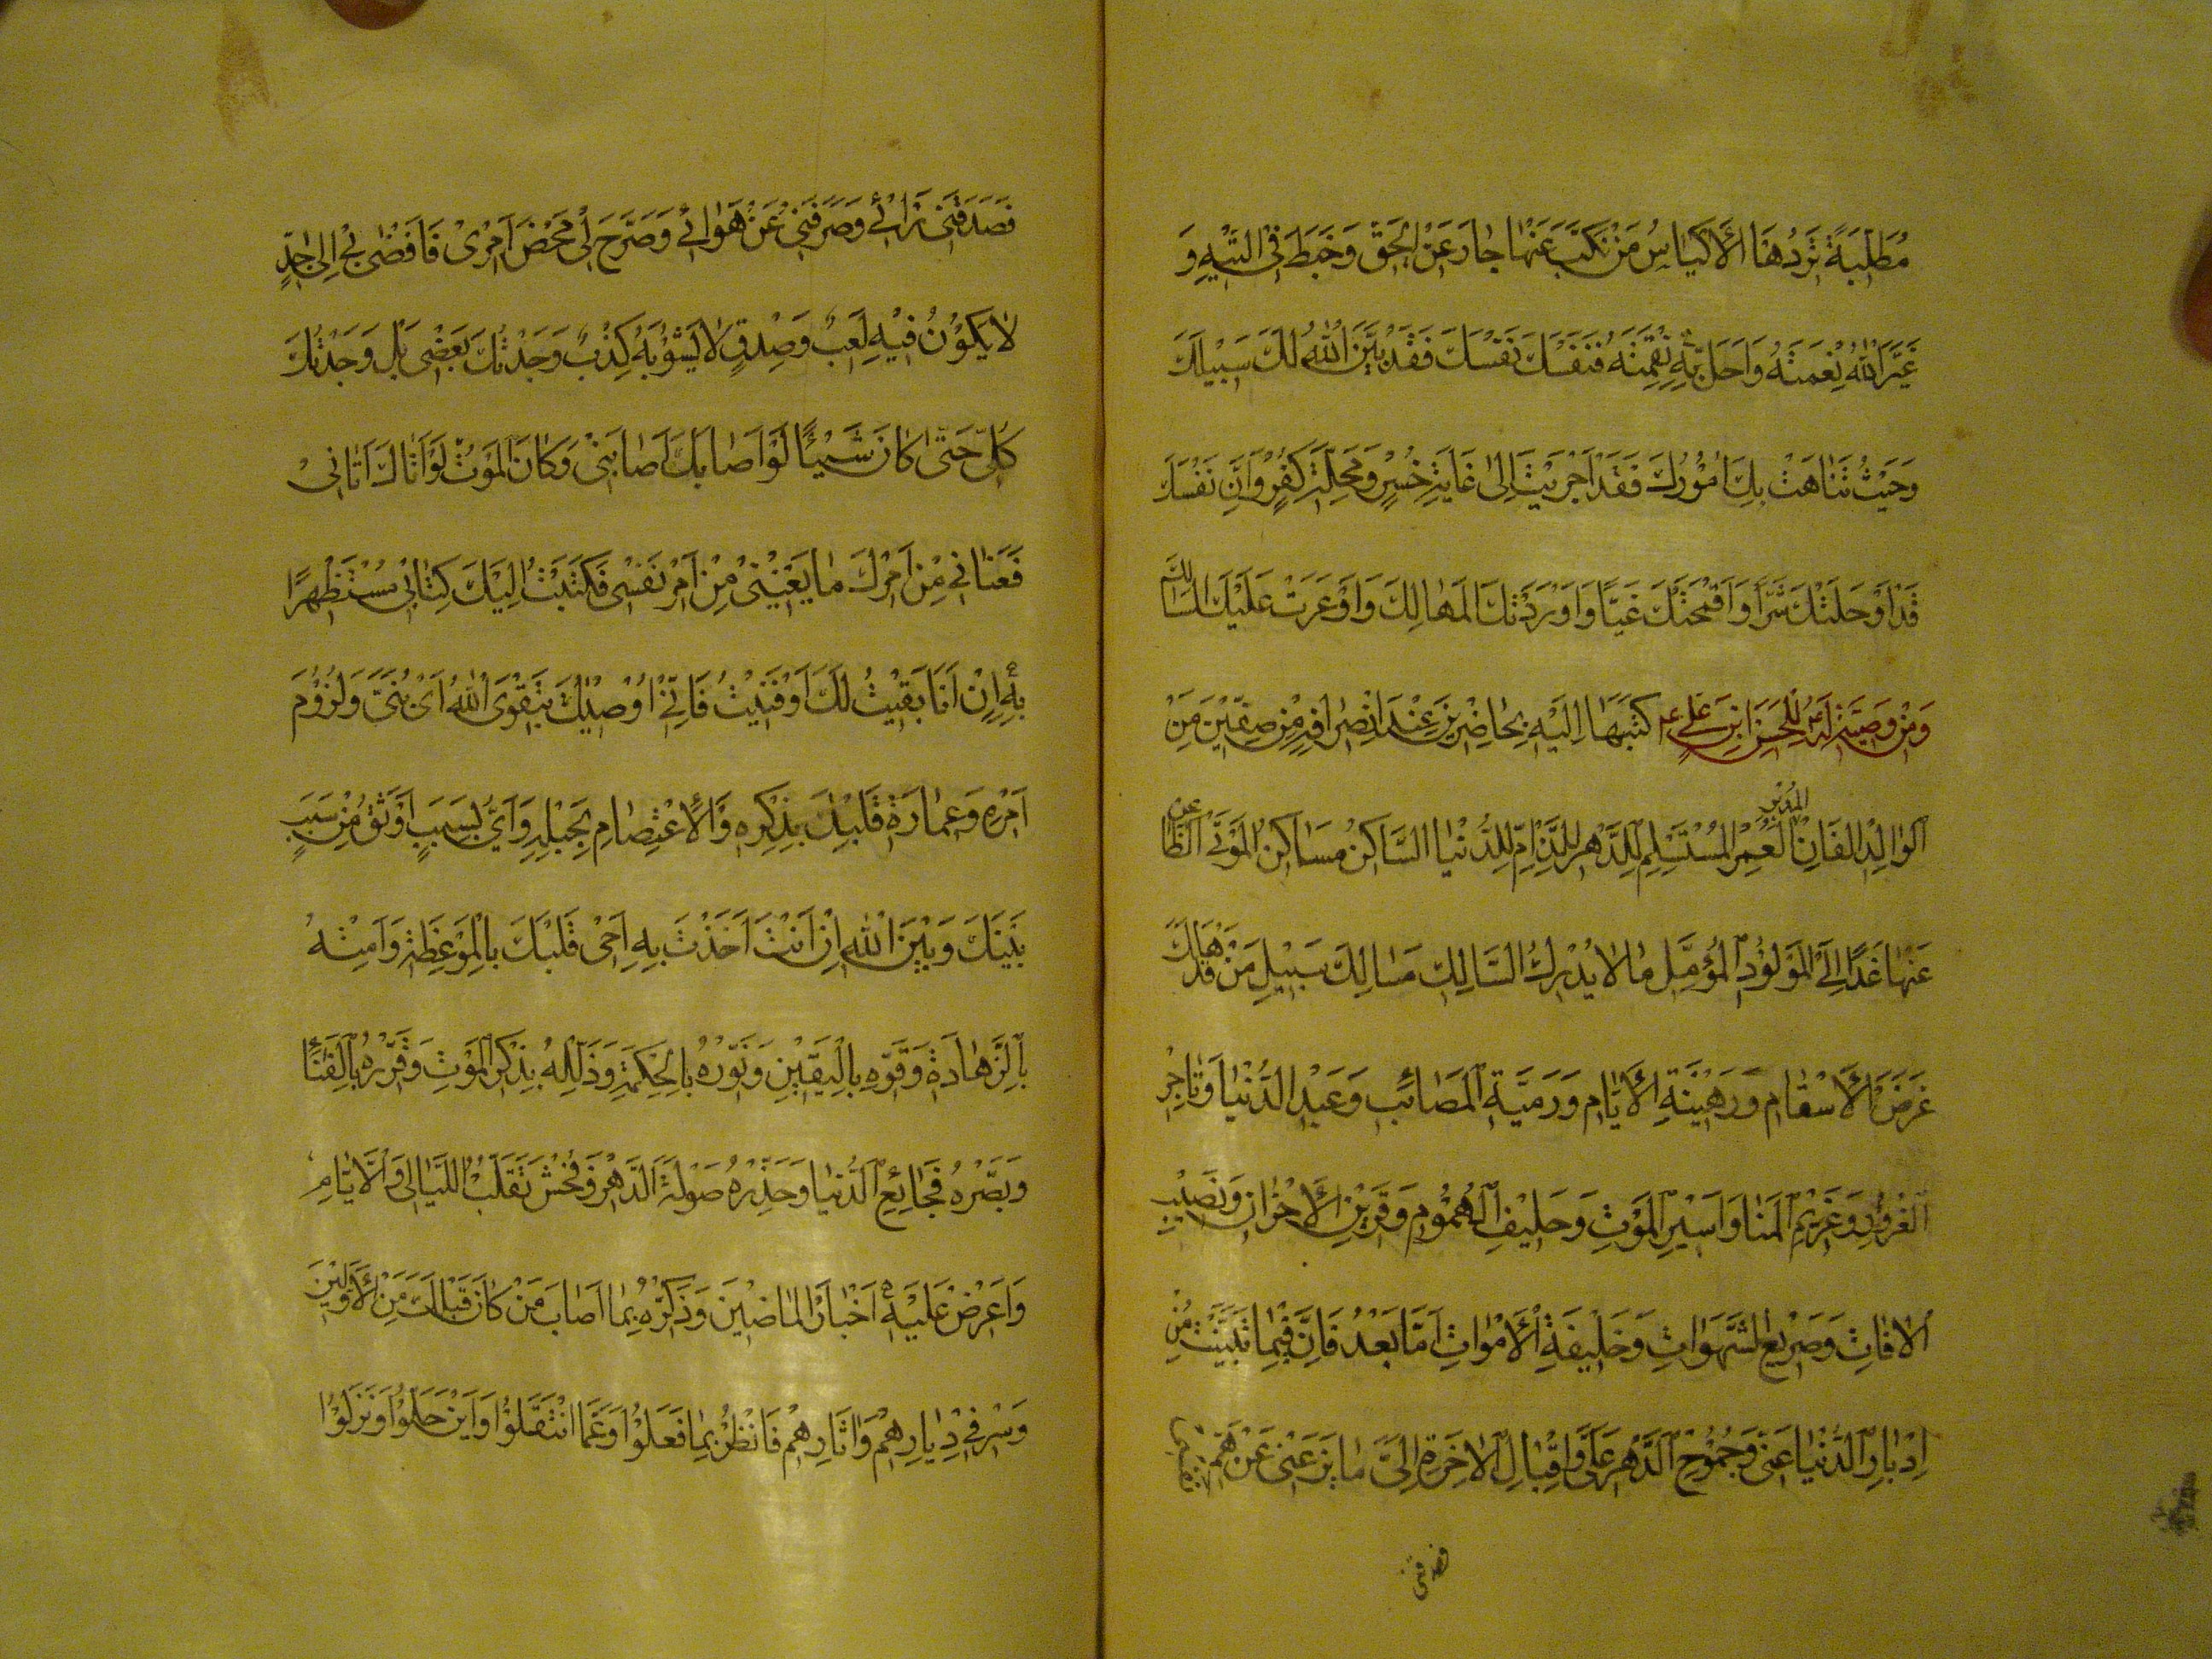 مُطَلِّبَةً تَرِدُهَا الْأَكْيَاسُ مَنْ نَكَّبَ عَنْهَا جَارَ عَنِ الْحَقِّ وَخَبَطَ فِي التِّيهِ وَ
غَيَّرَ اللهُ نِعْمَتَهُ وَاَحَلَّ بِهِ نِقْمَتَهُ فَنَفْسَكَ نَفْسَكَ فَقَدْ بَيَّنَ اللهُ لَكَ سَبِيلَكَ
وَحَيْثُ تَنَاهَتْ بِكَ اُمُوْرُكَ فَقَدْ اَجْرَيْتَ اِلٰى غَايَةِ خُسْرٍ وَمَحَلَّةِ كُفْرٍ وَاَنَّ نَفْسَكَ
قَدْ اَوْحَلَتْكَ شَرًّا وَاَقْحَمَتْكَ غَيًّا وَاَوْرَدَتْكَ الْمَهَالِكَ وَاَوْعَرَتْ عَلَيْكَ الْمَسَالِكَ
وَمِنْ وَصِيَّتِهِ لَهُ لِلْحَسَنِ ابْنِ عَلِيٍّ ع كَتَبَهَا اِلَيْهِ بِحَاضِرِيْنَ عِنْدَ انْصِرَافِهِ مِنْ صِفِّيْنَ مِنَ
الْوَالِدِ الْفَانِ الْمُدْبِرِ الْعُمُرِ الْمُسْتَسْلِمِ لِلدَّهْرِ لِلذَّامِّ لِلدُّنْيَا السَّاكِنِ مَسَاكِنَ الْمَوْتٰى الظَّاعِنِ
عَنْهَا غَدًا اِلَى الْمَوْلُوْدِ الْمُؤَمِّلِ مَا لَا يُدْرِكُ السَّالِكِ مَسَالِكَ سَبِيْلِ مَنْ قَدْ هَلَكَ
غَرَضَ الْأَسْقَامِ وَرَهِيْنَةِ الْأَيَّامِ وَرَمِيَّةِ الْمَصَائِبِ وَعَبْدِ الدُّنْيَا وَتَاجِرِ
الْغُرُوْرِ وَغَرِيْمِ الْمَنَايَا وَاَسِيْرِ الْمَوْتِ وَحَلِيْفِ الْهُمُوْمِ وَقَرِيْنِ الْأَحْزَانِ وَنَصِيْبِ
الْآفَاتِ وَصَرِيْعِ الشَّهَوَاتِ وَخَلِيْفَةِ الْأَمْوَاتِ اَمَّا بَعْدُ فَاِنَّ فِيْمَا تَبَيَّنْتُ مِنْ
اِدْبَارِ الدُّنْيَا عَنِّى وَجُمُوْحِ الدَّهْرِ عَلَىَّ وَاِقْبَالِ الْاٰخِرَةِ اِلَىَّ مَا يَزَعُنِىْ عَنْ
فصدقتنى
فَصَدَقَنِى رَائِى وَصَرَفَنِى عَنْ هَوَائِى وَصَرَّحَ لِى مَحْضَ اَمْرِىْ فَاَفْضٰى بِىْ اِلٰى جِدٍّ
لَا يَكُوْنُ فِيْهِ لَعِبٌ وَصِدْقٍ لَا يَشُوْبُهُ كَذِبٌ وَجَدْتُكَ بَعْضِى بَلْ وَجَدْتُكَ
كُلِّى حَتّٰى كَانَ شَيْئًا لَوْ اَصَابَكَ اَصَابَنِىْ وَكَانَ الْمَوْتُ لَوْ اَتَاكَ اَتَانِىْ
فَعَنَانِى مِنْ اَمْرِكَ مَا يَعْنِيْنِىْ مِنْ اَمْرِ نَفْسِى فَكَتَبْتُ اِلَيْكَ كِتَابِى مُسْتَظْهِرًا
بِهِ اِنْ اَنَا بَقِيْتُ لَكَ اَوْ فَنِيْتُ فَاِنِّىْ اُوْصِيْكَ بِتَقْوَى اللهِ اَىْ بُنَىَّ وَلُزُوْمِ
اَمْرِهِ وَعِمَارَةِ قَلْبِكَ بِذِكْرِهِ وَالْاِعْتِصَامِ بِحَبْلِهِ وَاَىُّ سَبَبٍ اَوْثَقُ مِنْ سَبَبٍ
بَيْنَكَ وَبَيْنَ اللهِ اِنْ اَنْتَ اَخَذْتَ بِهِ اَحْىِ قَلْبَكَ بِالْمَوْعِظَةِ وَاَمِتْهُ
بِالزَّهَادَةِ وَقَوِّهِ بِالْيَقِيْنِ وَنَوِّرْهُ بِالْحِكْمَةِ وَذَلِّلْهُ بِذِكْرِ الْمَوْتِ وَقَرِّرْهُ بِالْفَنَاءِ
وَبَصِّرْهُ فَجَائِعَ الدُّنْيَا وَحَذِّرْهُ صَوْلَةَ الدَّهْرِ وَفُحْشَ تَقَلُّبِ اللَّيَالِى وَالْاَيَّامِ
وَاعْرِضْ عَلَيْهِ اَخْبَارَ الْمَاضِيْنَ وَذَكِّرْهُ بِمَا اَصَابَ مَنْ كَانَ قَبْلَكَ مِنَ الْاَوَّلِيْنَ
وَسِرْ فِى دِيَارِهِمْ وَاٰثَارِهِمْ فَانْظُرْ بِمَا فَعَلُوْا وَعَمَّا انْتَقَلُوْا وَاَيْنَ حَلُّوْا وَنَزَلُوْا